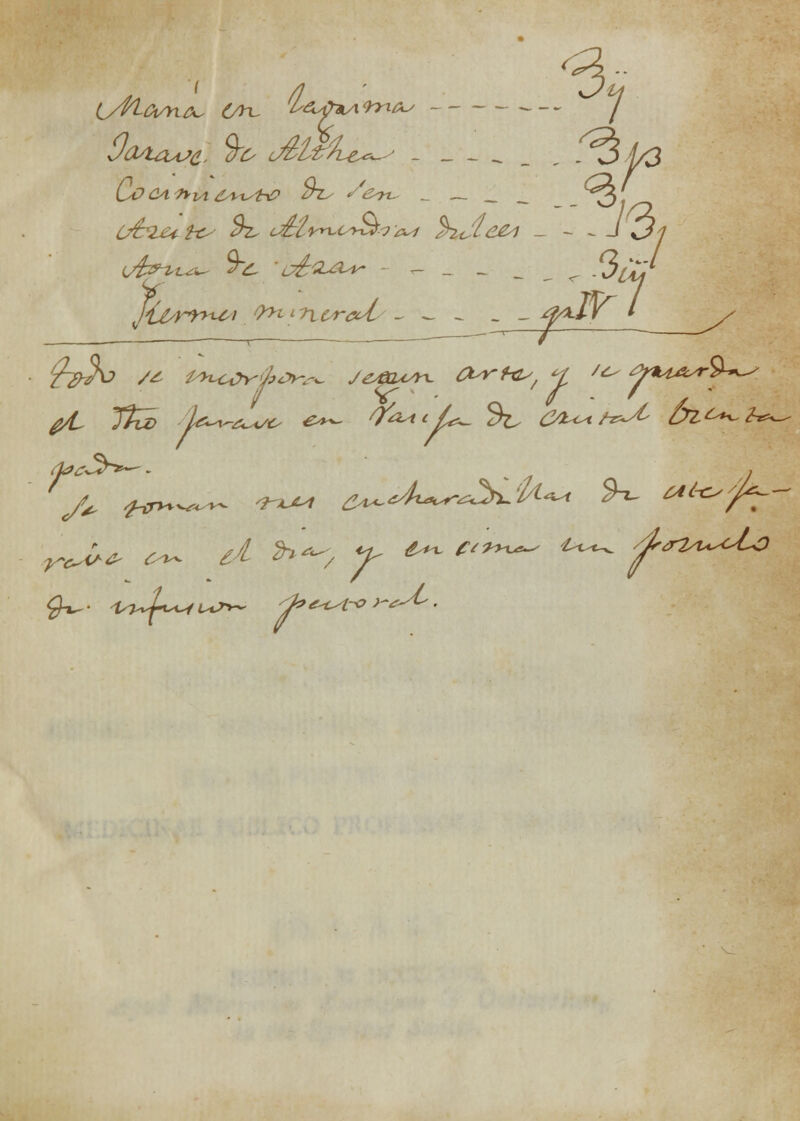 Maná en lagrima - - - - - - - ℥ij
Jarave de Althea - - - - - - ℥jß
Cocimiento de sen - - - - - - ℥j
Azeite de Almendras dulces - - - - ℥j
Agua de Azar - - - - - - - ʒiij
Kermes mineral - - - - - grIV
todo se incorpora segun arte, y se guarda
el Dho jarave en vasija de cristal bien ta
pada.
Se toman tres cucharadillas de este ja-
rave en el dia, y en cima un pozuelo
de infusion pectoral.
MEDICINAE PUBLICO